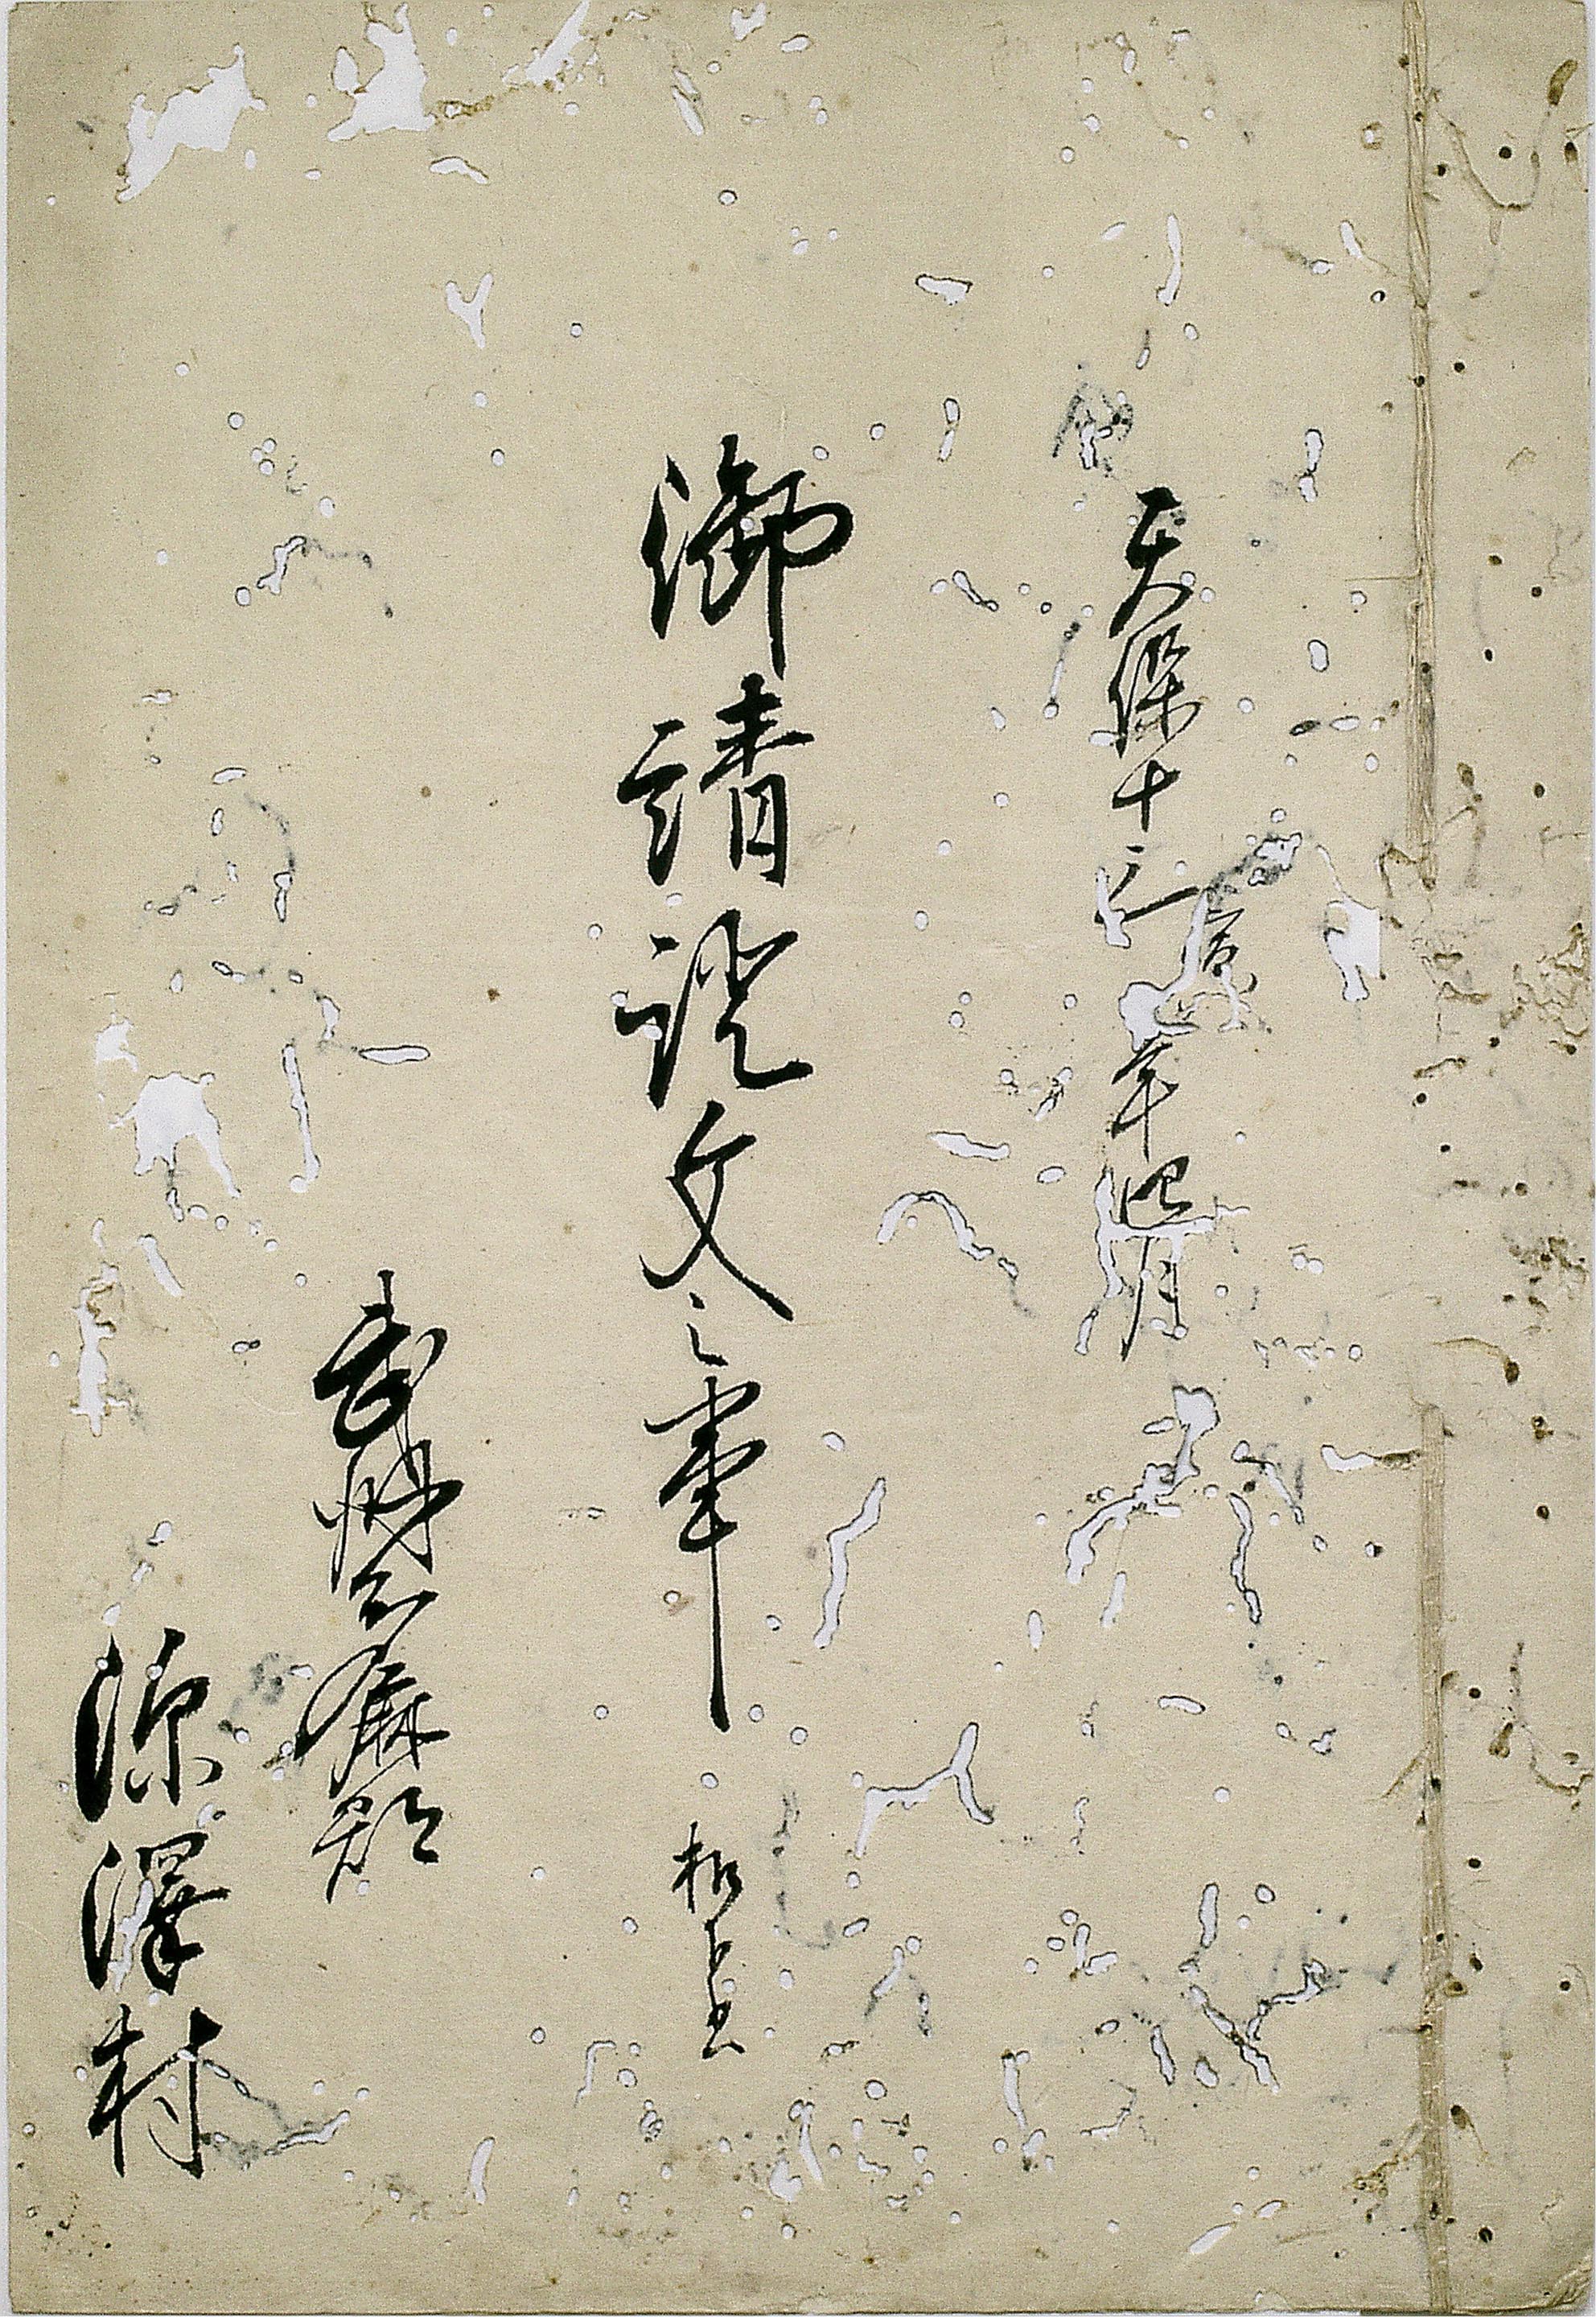 天保十三寅年四月
御請證文之事
扣
武州多摩郡
澤村